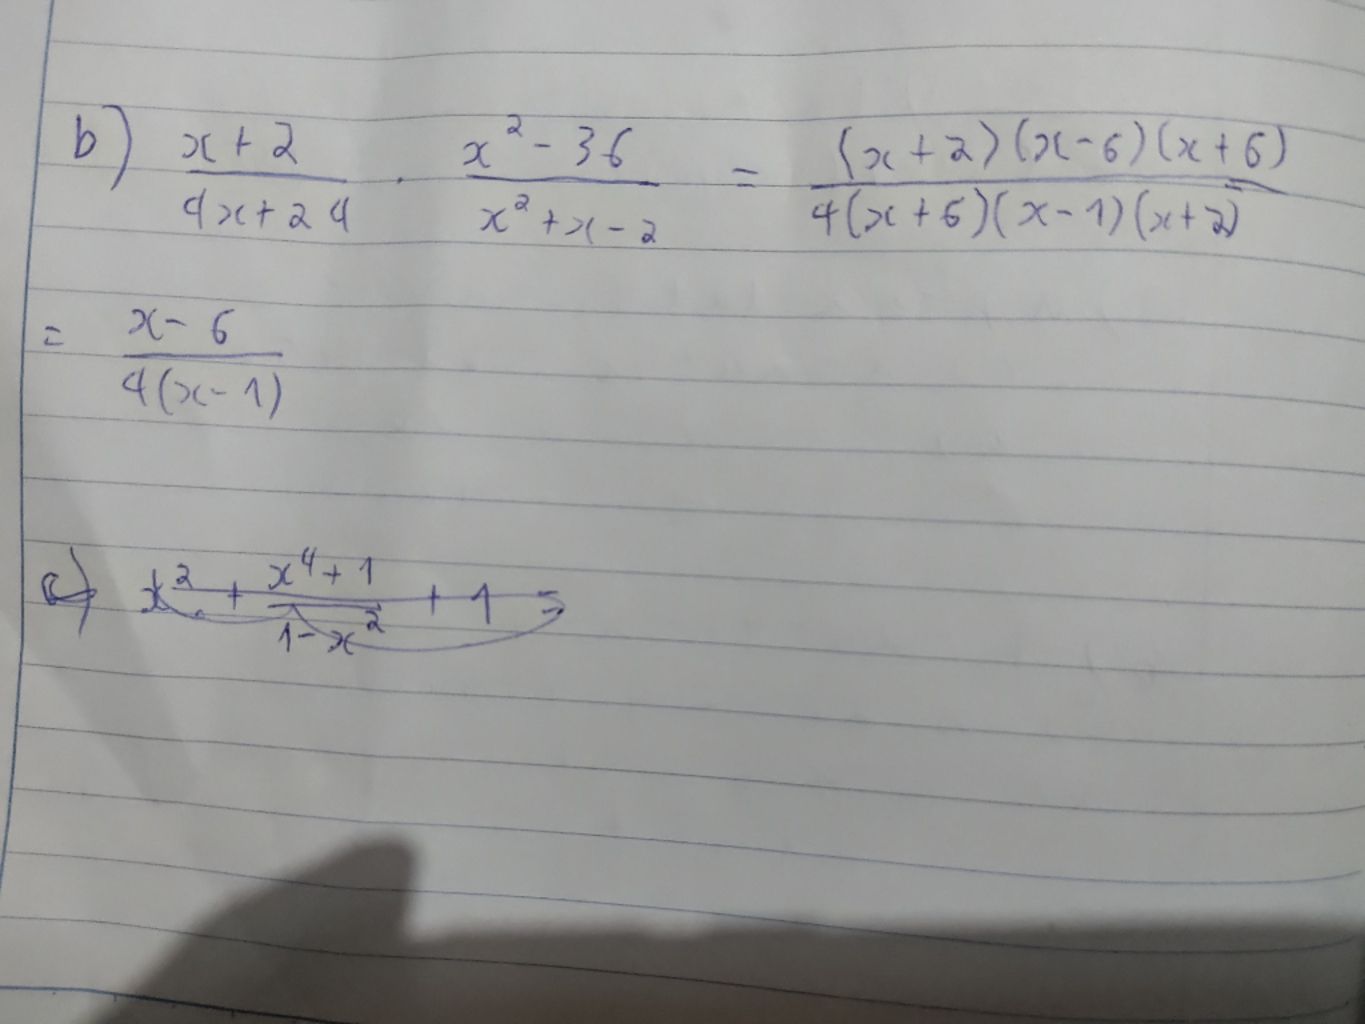 b) \frac{x+2}{4x+24} . \frac{x^2-36}{x^2+x-2} = \frac{(x+2)(x-6)(x+6)}{4(x+6)(x-1)(x+2)}
= \frac{x-6}{4(x-1)}
c) x^2 + \frac{x^4+1}{1-x^2} + 1 =